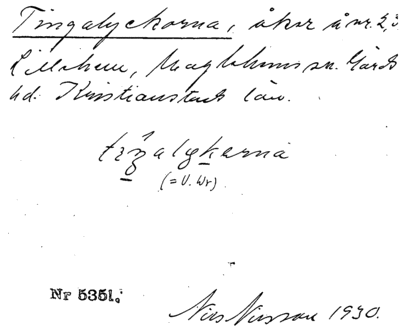 Tingalyckorna, åkor å nr. 2, 3
Lillehem, Maglehems sn. Gärds
hd. Kristianstads län.
(= V. Wr)
Nr 5351.
Nils Nilsson 1930.